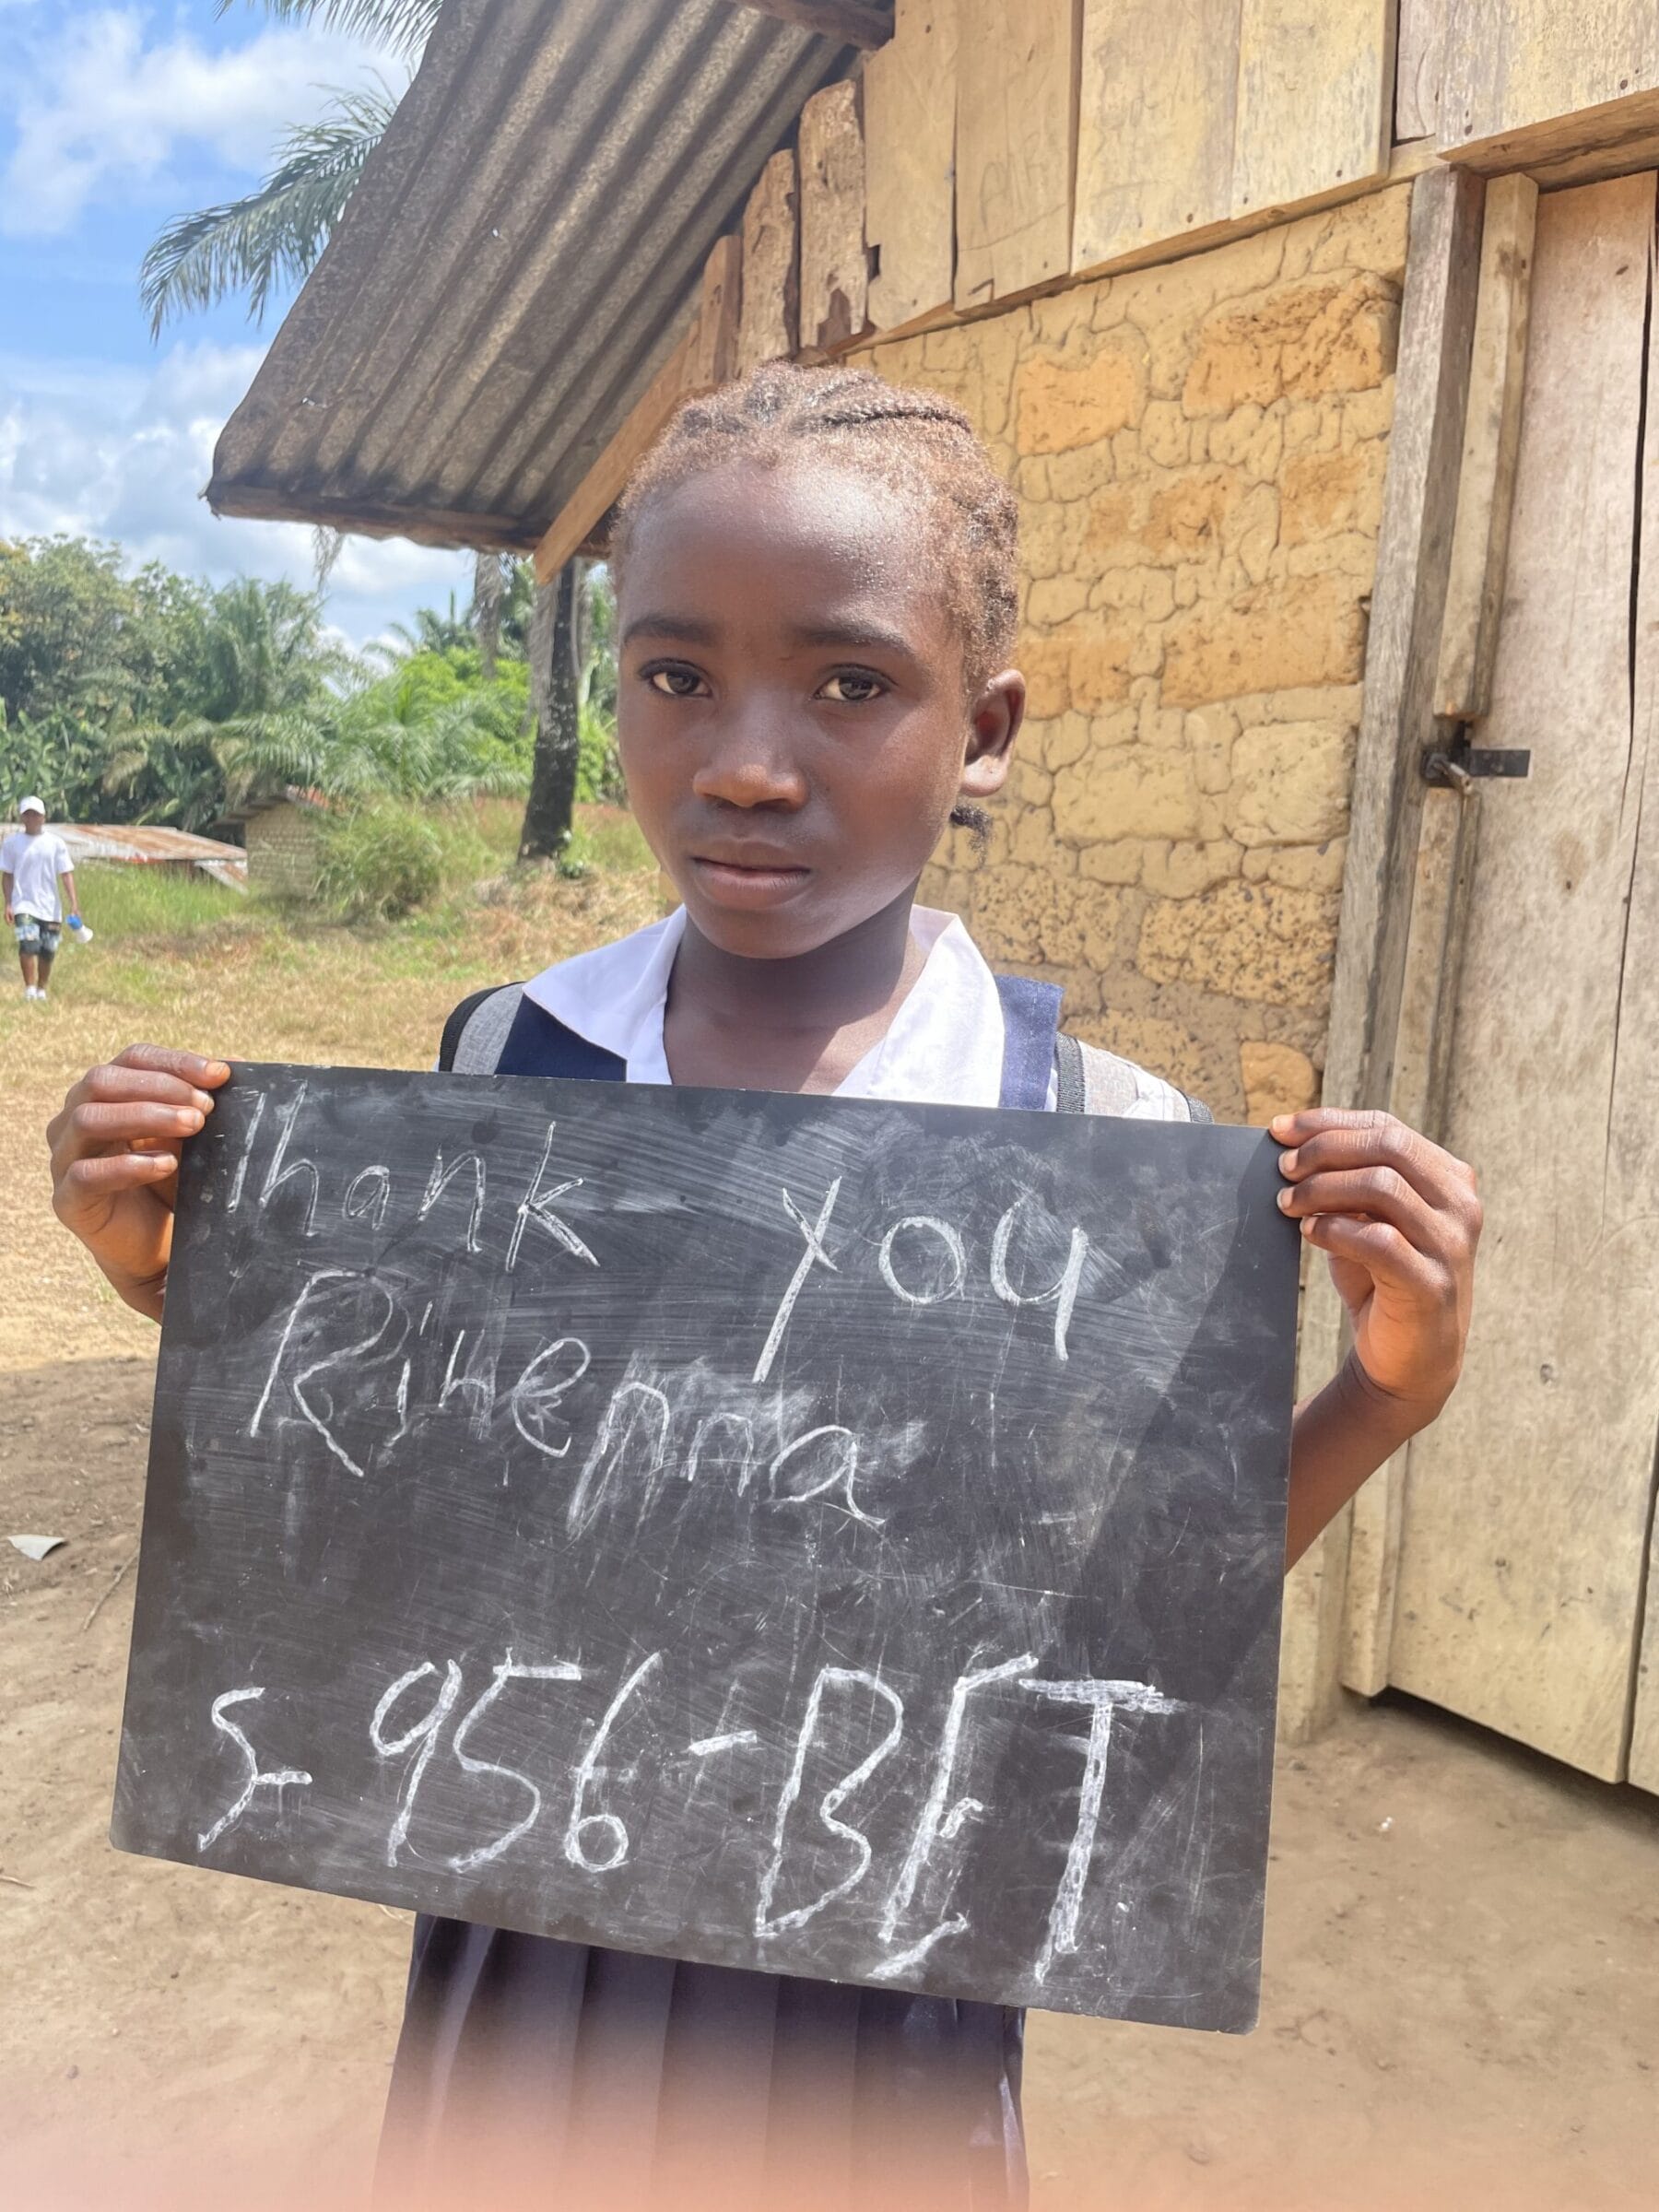 Thank you
Rihenna
S-956-BFT